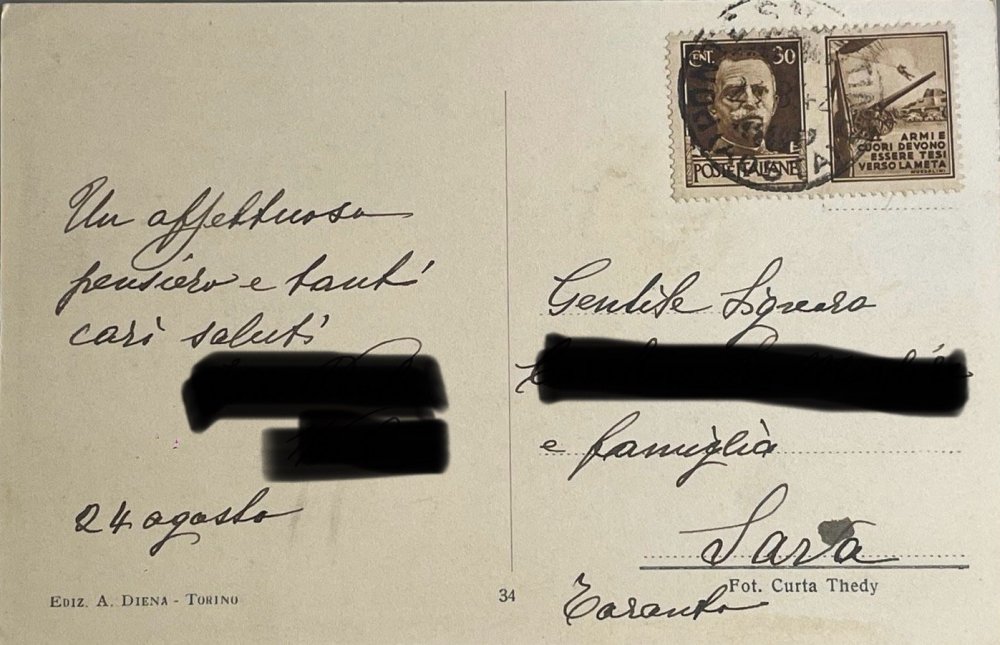 CENT. 30
POSTE ITALIANE
ARMI E
CUORI DEVONO
ESSERE TESI
VERSO LA META
MUSSOLINI
Un affettuoso
pensiero e tanti
cari saluti
24 agosto
EDIZ. A. DIENA - TORINO
34
Gentile Signora
e famiglia
Sava
Fot. Curta Thedy
Taranto